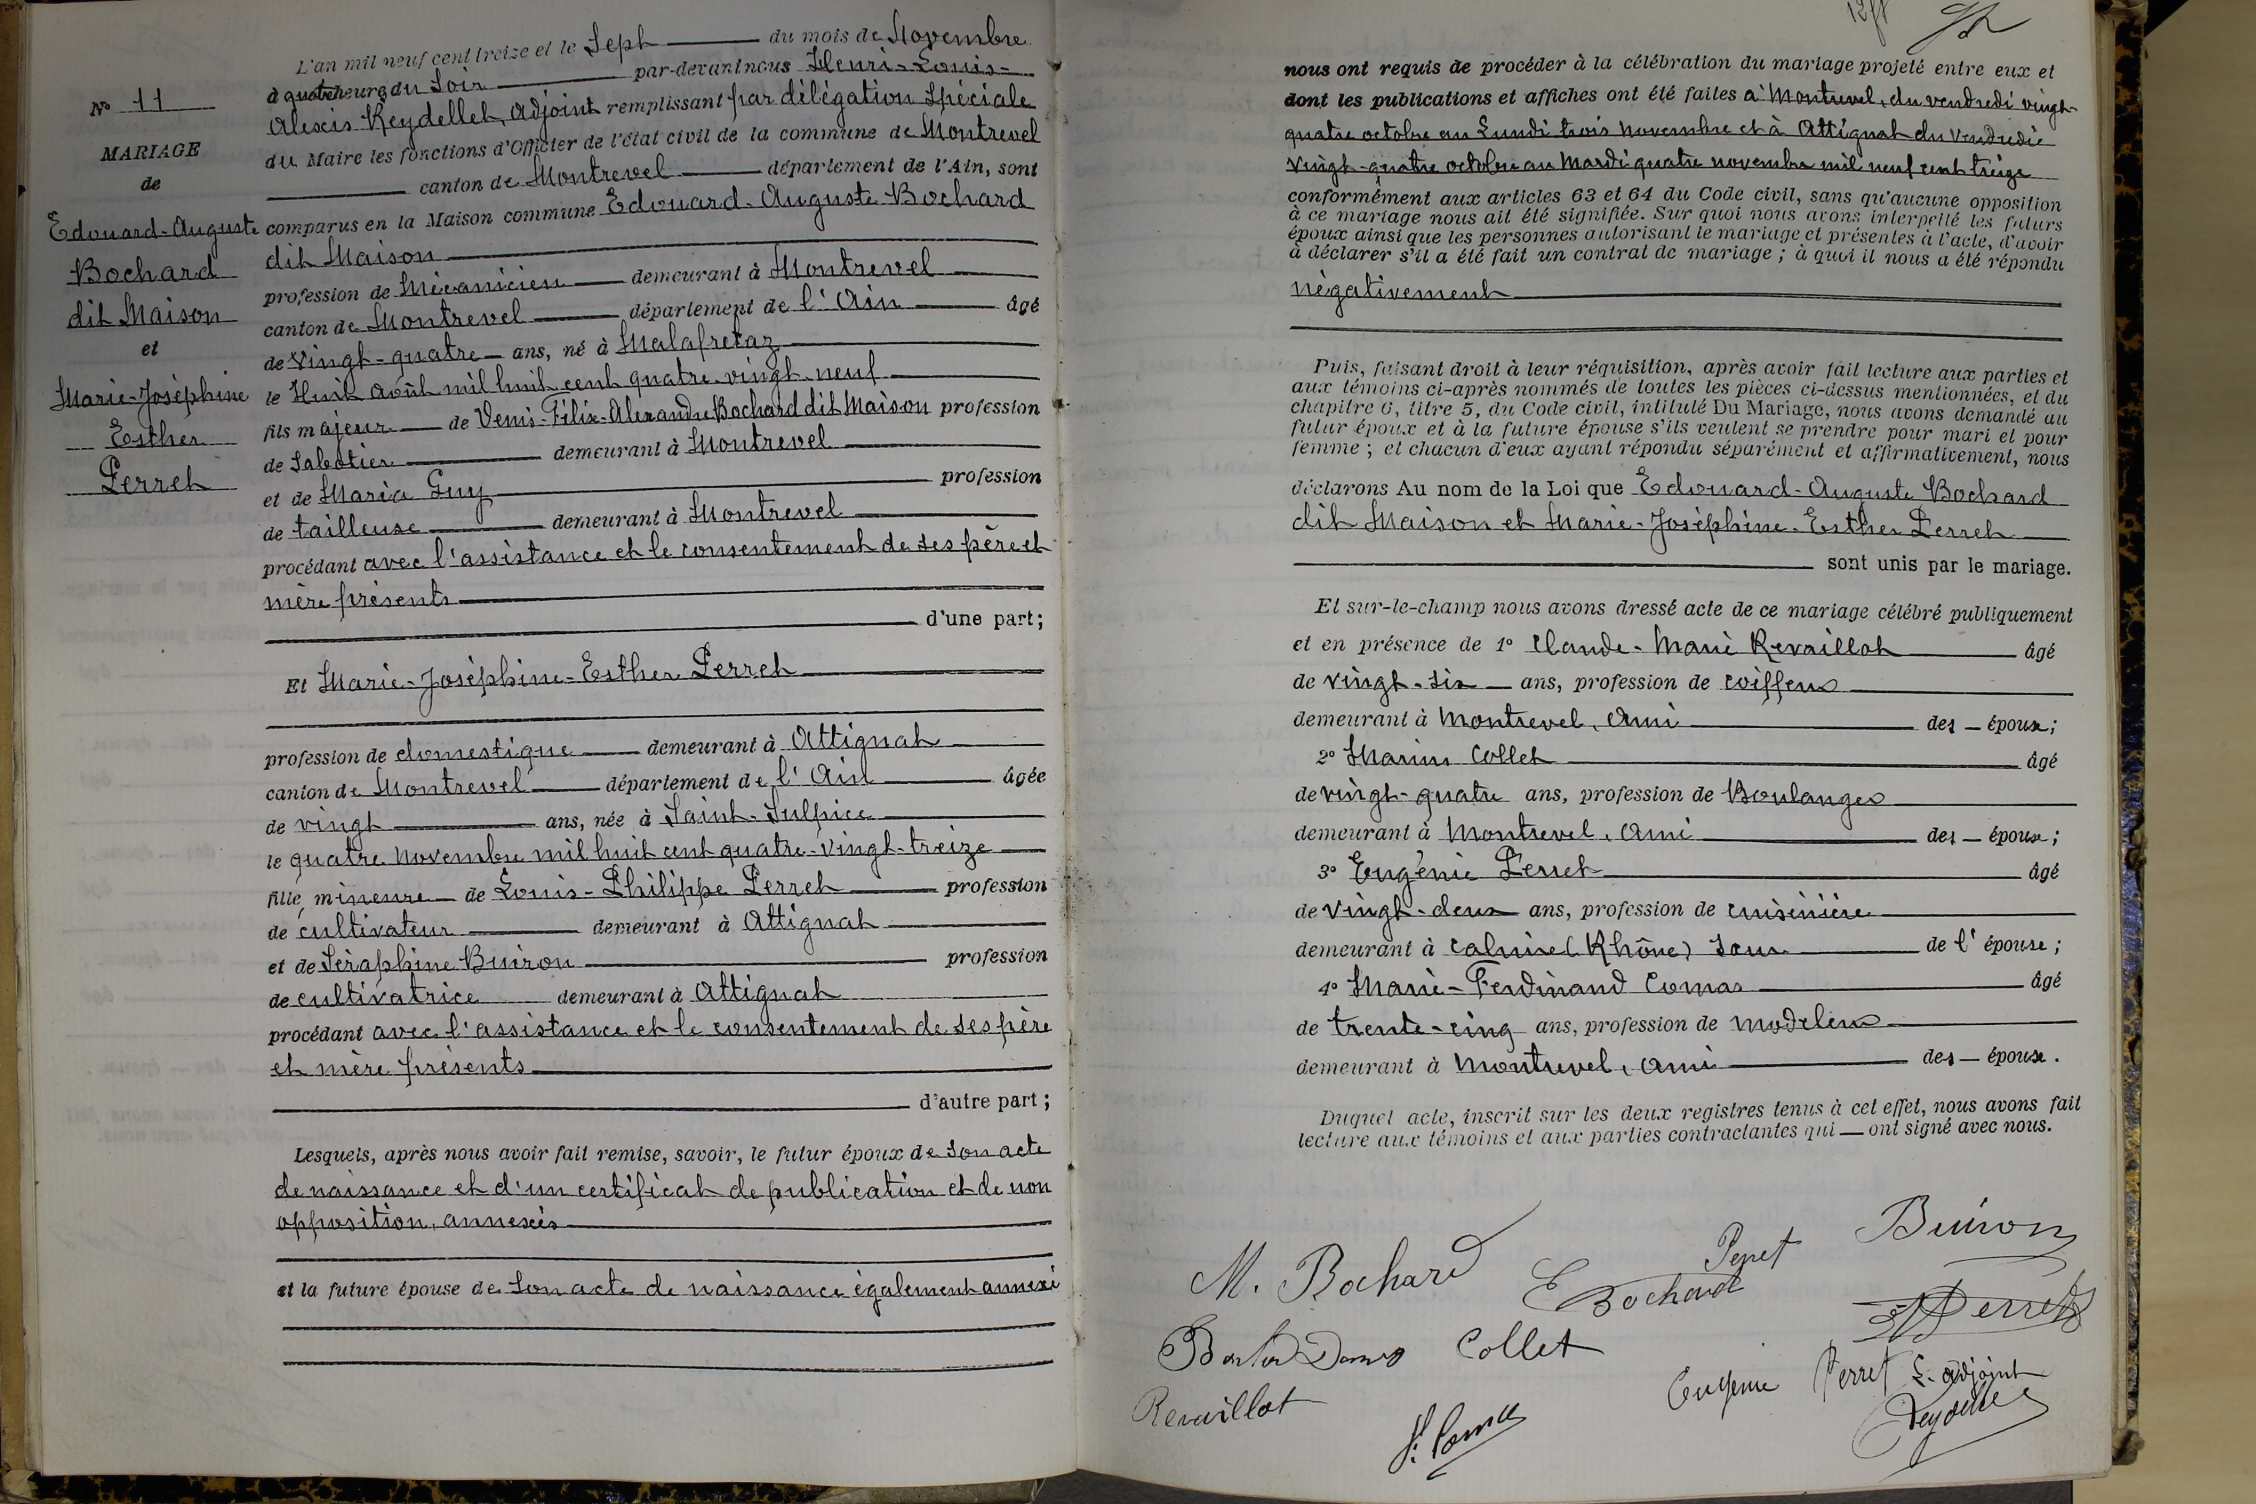 L'an mil neuf cent treize et le Sept du mois de Novembre
à quatre heures du Soir par-devant nous Henri-Louis-
Alexis Reydellet, Adjoint remplissant par délégation Spéciale
du Maire les fonctions d'Officier de l'état civil de la commune de Montrevel
canton de Montrevel département de l'Ain, sont
comparus en la Maison commune Edouard-Auguste Bochard
dit Maison
profession de Mécanicien demeurant à Montrevel
canton de Montrevel département de l'Ain âgé
de Vingt-quatre ans, né à Malafretaz
le Huit août mil huit cent quatre vingt neuf
fils majeur de Denis-Félix-Alexandre Bochard dit Maison profession
de Sabotier demeurant à Montrevel
et de Maria Guy profession
de tailleuse demeurant à Montrevel
procédant avec l'assistance et le consentement de ses père et
mère présents
d'une part;
Et Marie-Joséphine-Esther Perret
profession de domestique demeurant à Attignat
canton de Montrevel département de l'Ain âgée
de vingt ans, née à Saint-Sulpice
le quatre Novembre mil huit cent quatre-vingt-treize
fille mineure de Louis-Philippe Perret profession
de cultivateur demeurant à Attignat
et de Séraphine Buiron profession
de cultivatrice demeurant à Attignat
procédant avec l'assistance et le consentement de ses père
et mère présents
d'autre part;
Lesquels, après nous avoir fait remise, savoir, le futur époux de son acte
de naissance et d'un certificat de publication et de non
opposition, annexés
et la future épouse de son acte de naissance également annexé
No 11
MARIAGE
de
Edouard-Auguste
Bochard
dit Maison
et
Marie-Joséphine
Esther
Perret
nous ont requis de procéder à la célébration du mariage projeté entre eux et
dont les publications et affiches ont été faites à Montrevel, du vendredi vingt-
quatre octobre au Lundi trois novembre et à Attignat du Vendredi
vingt-quatre octobre au Mardi quatre novembre mil neuf cent treize
conformément aux articles 63 et 64 du Code civil, sans qu'aucune opposition
à ce mariage nous ait été signifiée. Sur quoi nous avons interpellé les futurs
époux ainsi que les personnes autorisant le mariage et présentes à l'acte, d'avoir
à déclarer s'il a été fait un contrat de mariage; à quoi il nous a été répondu
négativement
Puis, faisant droit à leur réquisition, après avoir fait lecture aux parties et
aux témoins ci-après nommés de toutes les pièces ci-dessus mentionnées, et du
chapitre 6, titre 5, du Code civil, intitulé Du Mariage, nous avons demandé au
futur époux et à la future épouse s'ils veulent se prendre pour mari et pour
femme; et chacun d'eux ayant répondu séparément et affirmativement, nous
déclarons Au nom de la Loi que Edouard-Auguste Bochard
dit Maison et Marie-Joséphine-Esther Perret
sont unis par le mariage.
Et sur-le-champ nous avons dressé acte de ce mariage célébré publiquement
et en présence de 1º Claude-Marie Revaillot âgé
de vingt-six ans, profession de coiffeur
demeurant à Montrevel, ami des époux;
2º Marius Collet âgé
de vingt-quatre ans, profession de Boulanger
demeurant à Montrevel, ami des époux;
3º Eugénie Perret âgé
de vingt-deux ans, profession de cuisinière
demeurant à Caluire (Rhône) sœur de l'épouse;
4º Marie-Ferdinand Comas âgé
de trente-cinq ans, profession de modeleur
demeurant à Montrevel, ami des époux.
Duquel acte, inscrit sur les deux registres tenus à cet effet, nous avons fait
lecture aux témoins et aux parties contractantes qui ont signé avec nous.
M. Bochard E Bochard Perret Buiron
Collet Perret
Revaillot Eugénie Perret L'adjoint
Reydellet